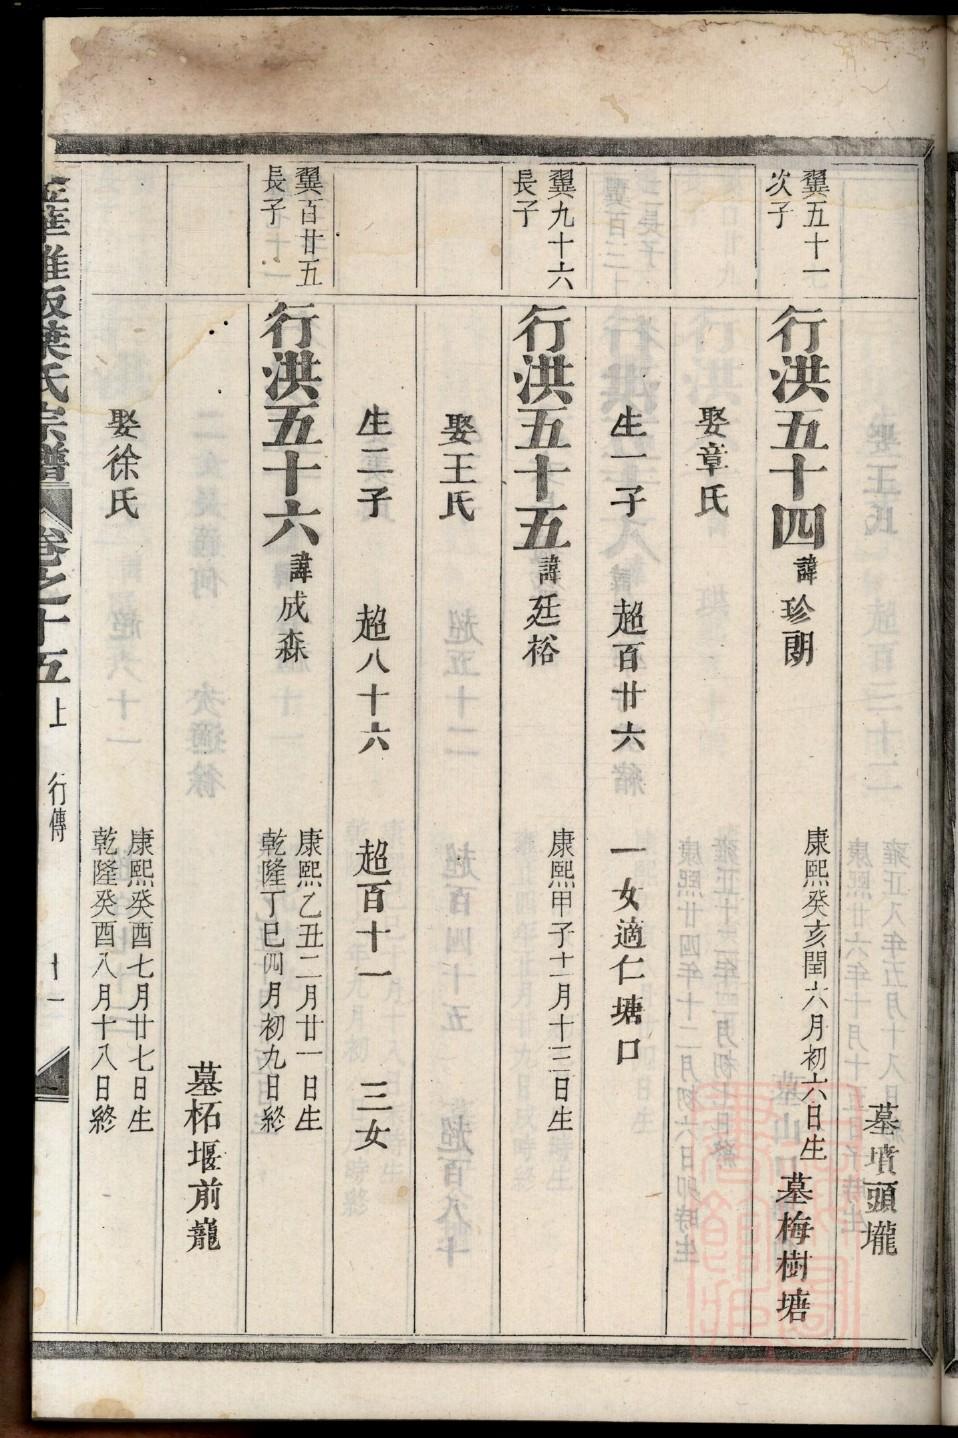 墓墳頭壠
翼五十一次子
行洪五十四 諱珍朗 康熙癸亥閏六月初六日生 墓梅樹塘
娶章氏
生一子 超百廿六 一女適仁塘口
翼九十六長子
行洪五十五 諱廷裕 康熙甲子十一月十三日生
娶王氏
生二子 超八十六 超百十一 三女
翼百廿五長子
行洪五十六 諱成森 康熙乙丑二月廿一日生
乾隆丁巳四月初九日終
墓柘堰前龍
娶徐氏 康熙癸酉七月廿七日生
乾隆癸酉八月十八日終
葉氏宗譜 卷之十五上 行傳 十一